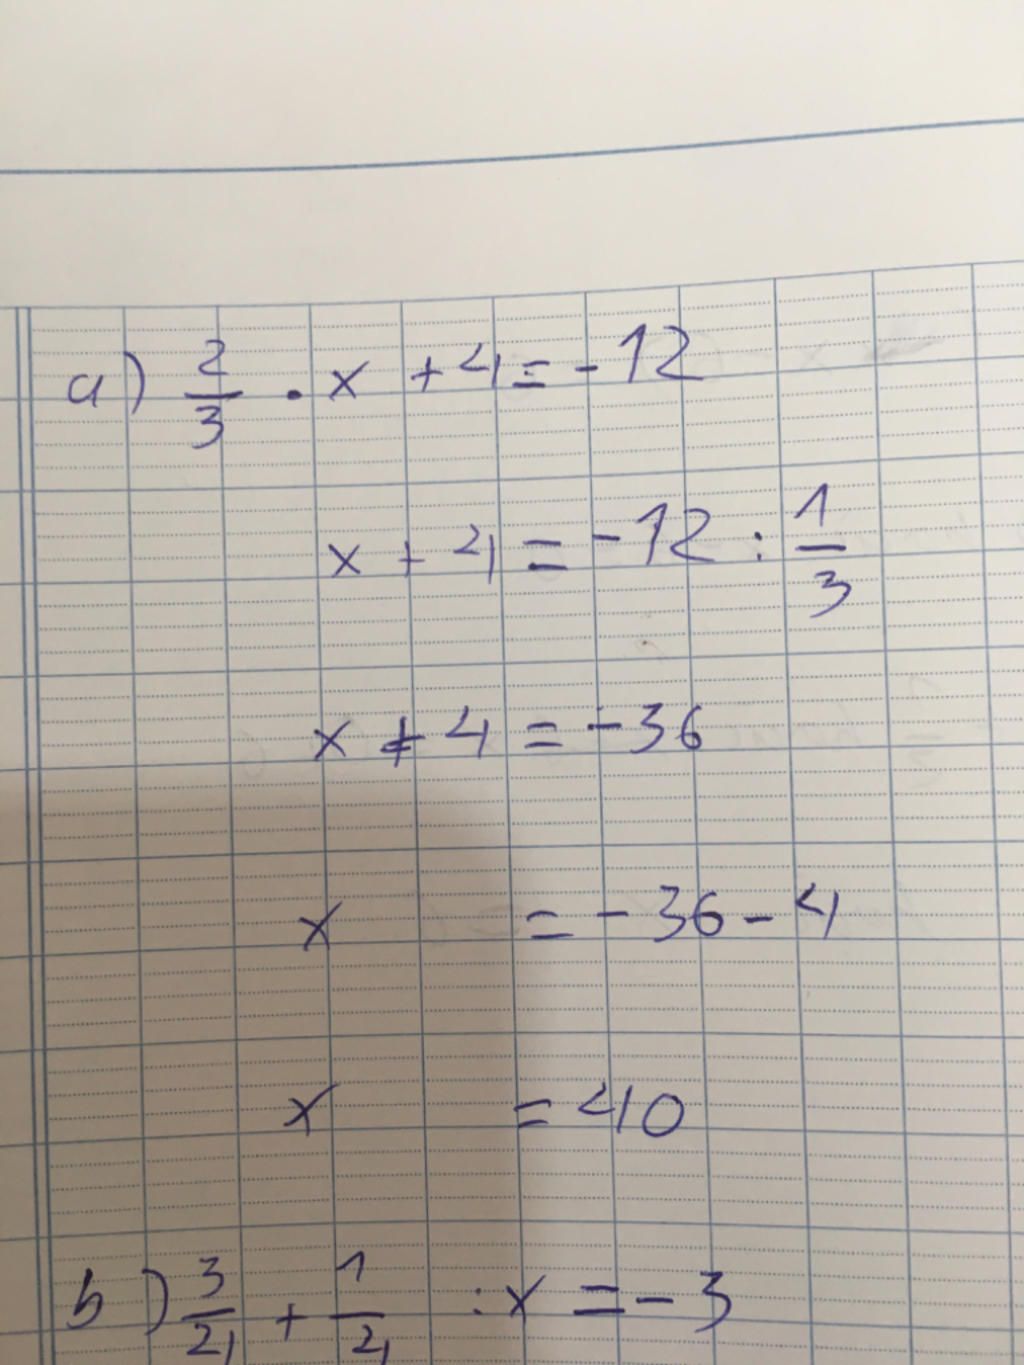 a) 2/3 . x + 4 = -12
x + 4 = -12 : 1/3
x + 4 = -36
x = -36 - 4
x = 40
b) 3/4 + 1/4 : x = -3